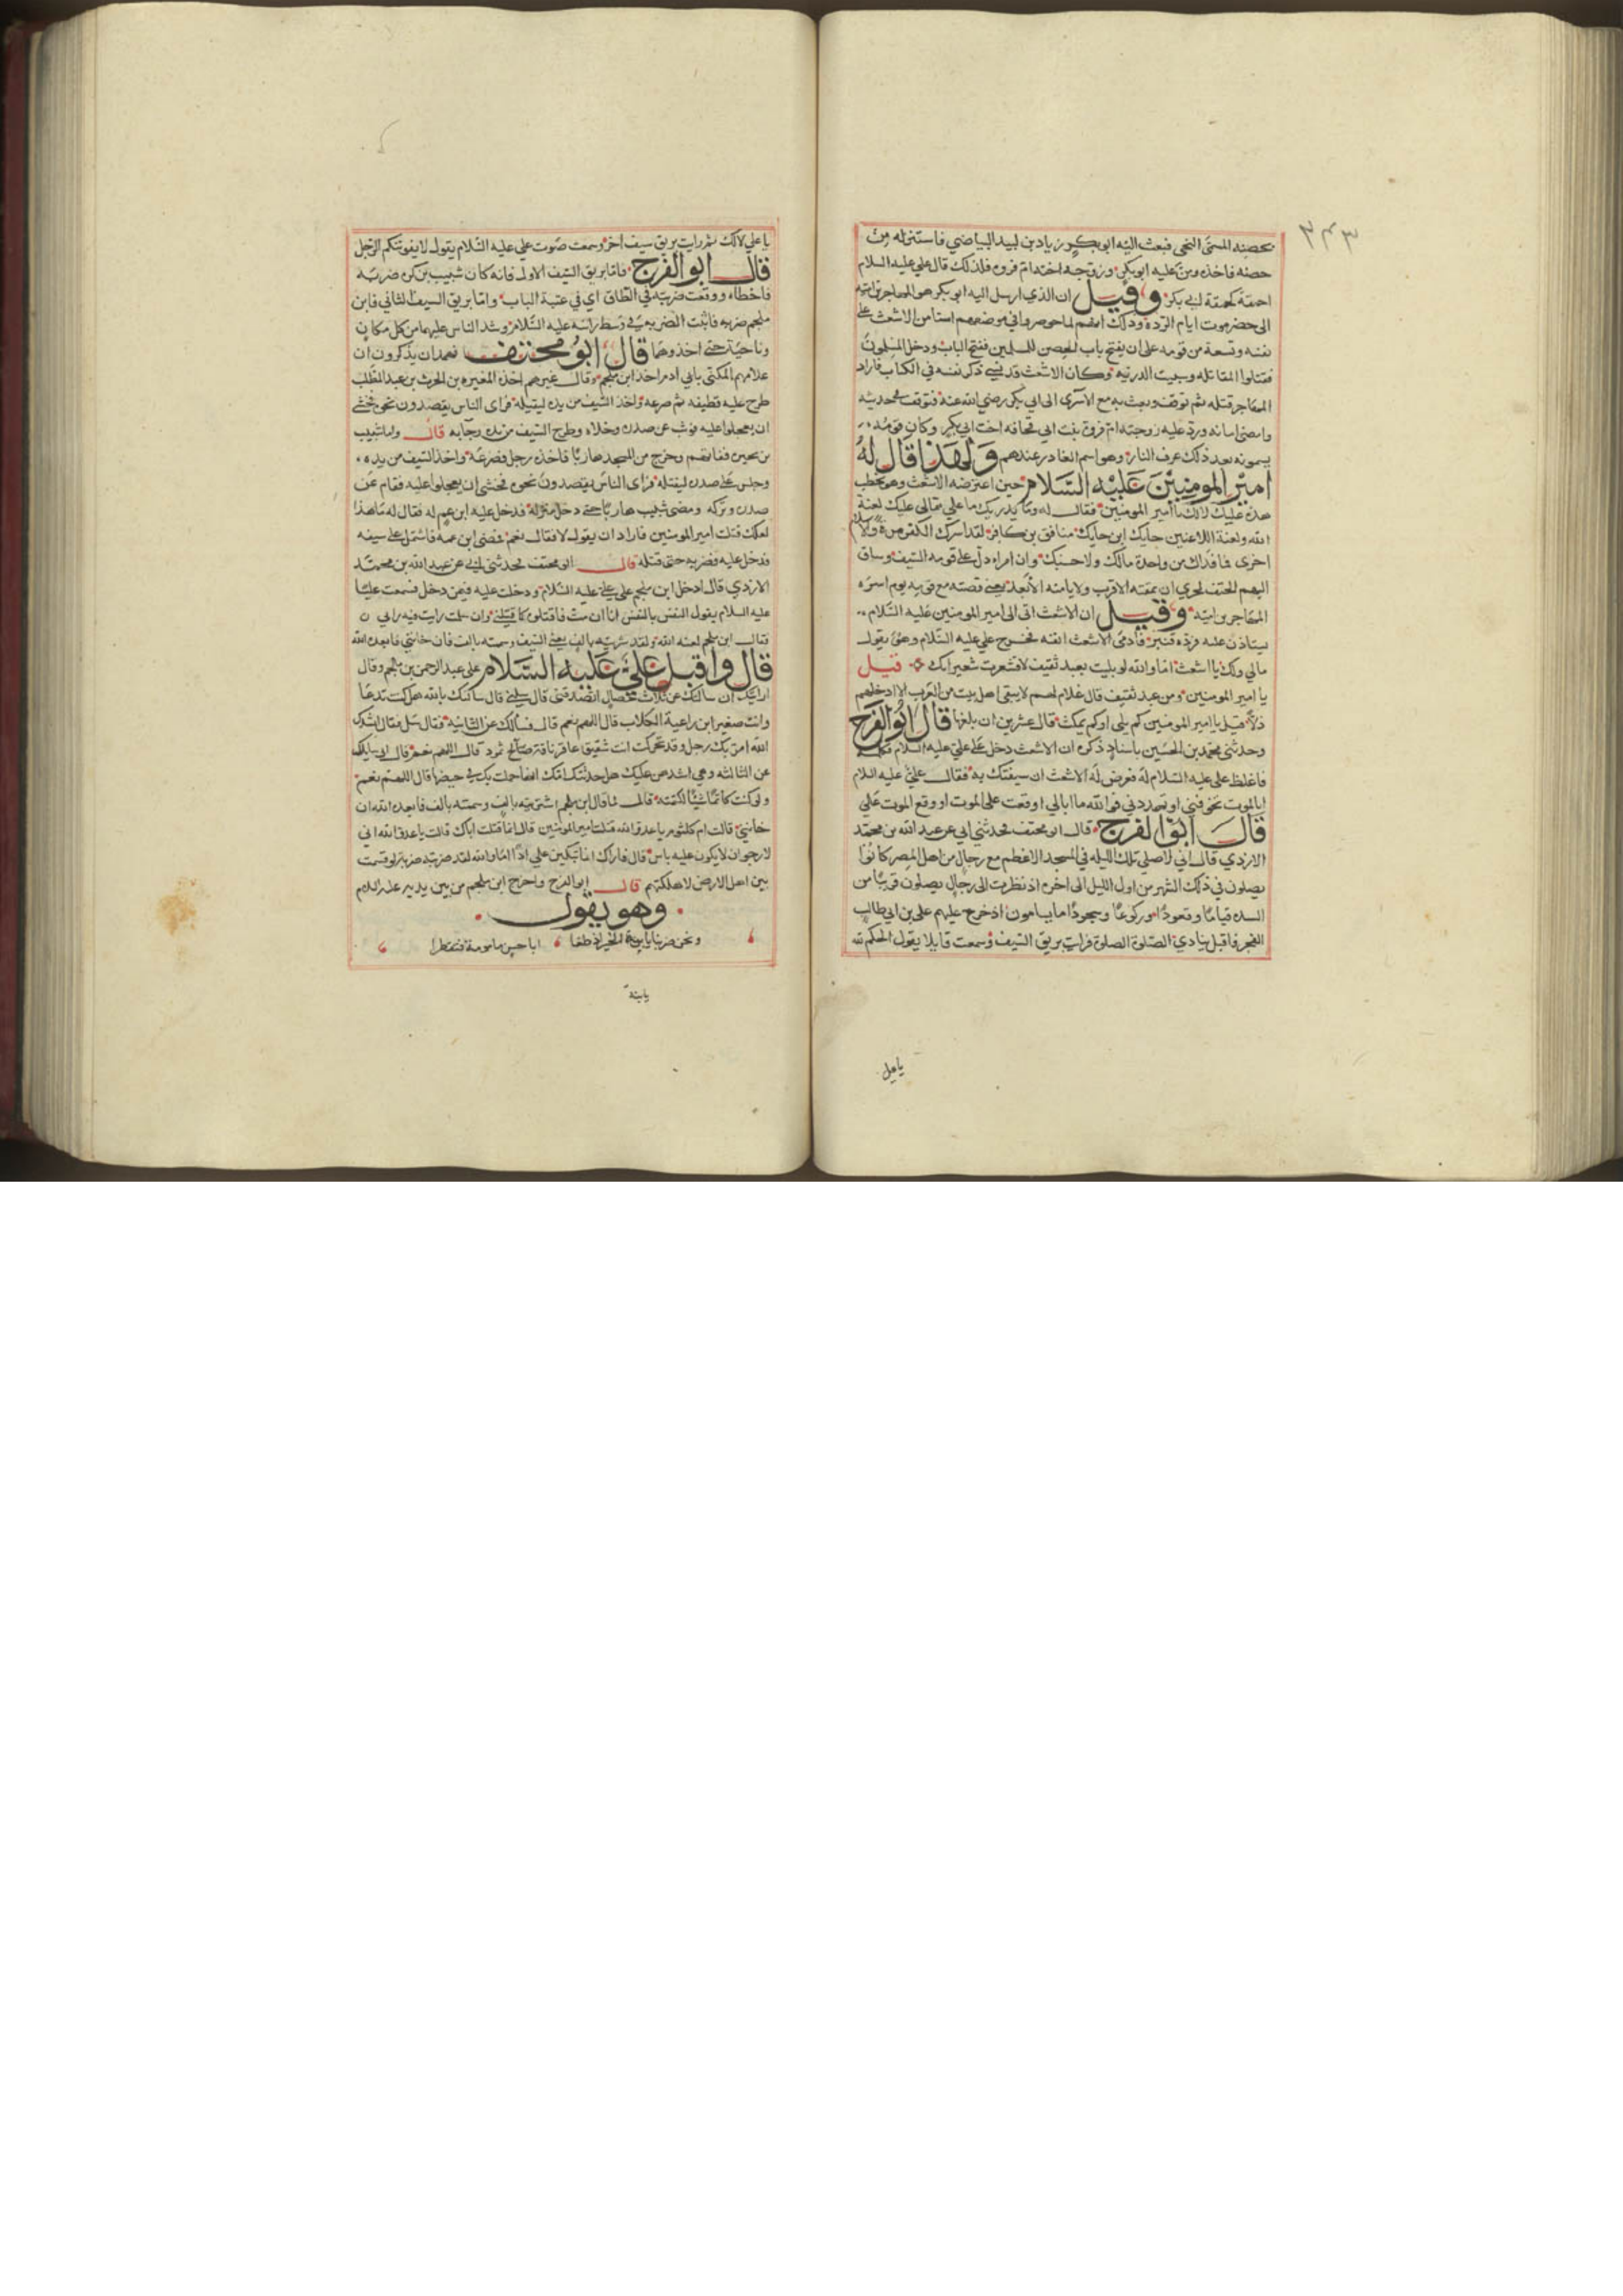 ٣٢٣
بحصنه المسمى النجير فبعث اليه ابو بكر زياد بن لبيد البياضي فاستنزله من
حصنه فاخذه ومن عليه ابو بكر وزوجه اخته ام فروه فلذلك قال علي عليه السلام
احمقة كحمقة ابي بكر وقيل ان الذي ارسل اليه ابو بكر هو المهاجر بن اميه
الى حضرموت ايام الرده وذلك انهم لما حوصروا في موضعهم استامن الاشعث على
نفسه وتسعة من قومه على ان يفتح باب الحصن للمسلمين ففتح الباب ودخل المسلمون
فقتلوا المقاتله وسبيت الذريه وكان الاشعث قد نسي ذكر نفسه في الكتاب فاراد
المهاجر قتله ثم توقف وبعث به مع الاسرى الى ابي بكر رضي الله عنه فتوقف
وامضى امانه ورد عليه زوجته ام فروة بنت ابي قحافه اخت ابي بكر وكان قومه
يسمونه بعد ذلك عرف النار وهو اسم الغادر عندهم ولهذا قال له
امير المومنين عليه السلام حين اعترضه الاشعث وهو يخطب
هذه عليك لا لك يا امير المومنين فقال له وما يدريك ما علي مما لي عليك لعنة
الله ولعنة اللاعنين حايك ابن حايك منافق بن كافر لقد اسرك الكفر مرة والاسلام
اخرى فما فداك من واحدة مالك ولا حسبك وان امرا دل على قومه السيف وساق
اليهم الحتف لحري ان يمقته الاقرب ولا يامنه الابعد يعني قصته مع قومه يوم اسره
المهاجر بن اميه وقيل ان الاشعث اتى الى امير المومنين عليه السلام
يستاذن عليه فرده قنبر فادمى الاشعث انفه فخرج علي عليه السلام وهو يقول
مالي ولك يا اشعث اما والله لو بليت بعبد ثقيف لاقشعرت شعيراتك قيل
يا امير المومنين ومن عبد ثقيف قال غلام لهم لا يبقي اهل بيت من العرب الا ادخلهم
ذلا قيل يا امير المومنين كم يلي او كم يمكث قال عشرين ان بلغها قال ابو الفرج
وحدثني محمد بن الحسين باسناد ذكره ان الاشعث دخل على علي عليه السلام فكلمه
فاغلظ علي عليه السلام له فعرض له الاشعث ان سيفتك به فقال علي عليه السلام
ابالموت تخوفني او تهددني فوالله ما ابالي اوقعت على الموت او وقع الموت علي
قال ابو الفرج قال ابو مخنف فحدثني ابي عن عبد الله بن محمد
الازدي قال اني لاصلي تلك الليله في المسجد الاعظم مع رجال من اهل المصر كانوا
يصلون في ذلك الشهر من اول الليل الى اخره اذ نظرت الى رجال يصلون قريبا من
السده قياما وقعودا وركوعا وسجودا ما يسامون اذ خرج عليهم علي بن ابي طالب
الفجر فاقبل ينادي الصلوة الصلوة فرايت بريق السيف وسمعت قايلا يقول الحكم لله
يا علي
يا علي لا لك ثم رايت بريق سيف اخر وسمعت صوت علي عليه السلام يقول لا يفوتنكم الرجل
قال ابو الفرج فاما بريق السيف الاول فانه كان شبيب بن بحره ضربه
فاخطاه ووقعت ضربته في الطاق اي في عتبة الباب واما بريق السيف الثاني فابن
ملجم ضربه فاثبت الضربه في وسط راسه عليه السلام وشد الناس عليهما من كل مكان
وناحية حتى اخذوهما قال ابو مخنف فهمدان يذكرون ان
غلامهم المكنى بابي ادما اخذ ابن ملجم وقال غيرهم اخذه المغيره بن الحرث بن عبد المطلب
طرح عليه قطيفه ثم صرعه واخذ السيف من يده ليقتله فراى الناس يقصدون نحوه فخشي
ان يعجلوا عليه فوثب عن صدره وخلاه وطرح السيف من يده قال واما شبيب
بن بحيره فانه خرج من المسجد هاربا فاخذه رجل فصرعه واخذ السيف من يده
وجلس على صدره ليقتله فراى الناس يقصدون نحوه فخشي ان يعجلوا عليه فقام عن
صدره وتركه ومضى شبيب هاربا حتى دخل منزله فدخل عليه ابن عم له فقال له ما هذا
لعلك قتلت امير المومنين فاراد ان يقول لا فقال نعم فمضى ابن عمه فاشتمل على سيفه
فدخل عليه فضربه حتى قتله قال ابو مخنف فحدثني ابي عن عبد الله بن محمد
الازدي قال ادخل ابن ملجم على علي عليه السلام ودخلت عليه فيمن دخل فسمعت عليا
عليه السلام يقول النفس بالنفس انا ان مت فاقتلوه كما قتلني وان سلمت رايت فيه رايي
فقال ابن ملجم لعنه الله ولقد شريته بالف يعني السيف وسمته بالف فان خانني فابعده الله
قال واقبل علي عليه السلام على عبد الرحمن بن ملجم وقال
ارايتك ان سالتك عن ثلاث خصال اتصدقني قال سلني قال سالتك بالله هل كنت تدعا
وانت صغير ابن راعية الكلاب قال اللهم نعم قال فسالك عن الثانيه فقال سل فقال انشدك
الله امر بك رجل وقد تحركت انت شقيق عاقر ناقة صالح ثمود قال اللهم نعم قال اني سايلك
عن الثالثه وهي اشدهن عليك هل حدثتك امك انها حملت بك في حيضها قال اللهم نعم
ولو كنت كاتما شيئا لكتمته قال فلما قال ابن ملجم اشتريته بالف وسمته بالف فابعده الله ان
خانني قالت ام كلثوم يا عدو الله قتلت امير المومنين قال انما قتلت اباك قالت يا عدو الله اني
لارجو ان لا يكون عليه باس قال فاراك انما تبكين علي اذا اما والله لقد ضربته ضربة لو قسمت
بين اهل الارض لاهلكتهم قال ابو الفرج واخرج ابن ملجم من بين يديه عليه السلام
وهو يقول
ونحن ضربنا يا بنة الخير اذ طغا ابا حسن مامومة فتفطرا
يا بنة